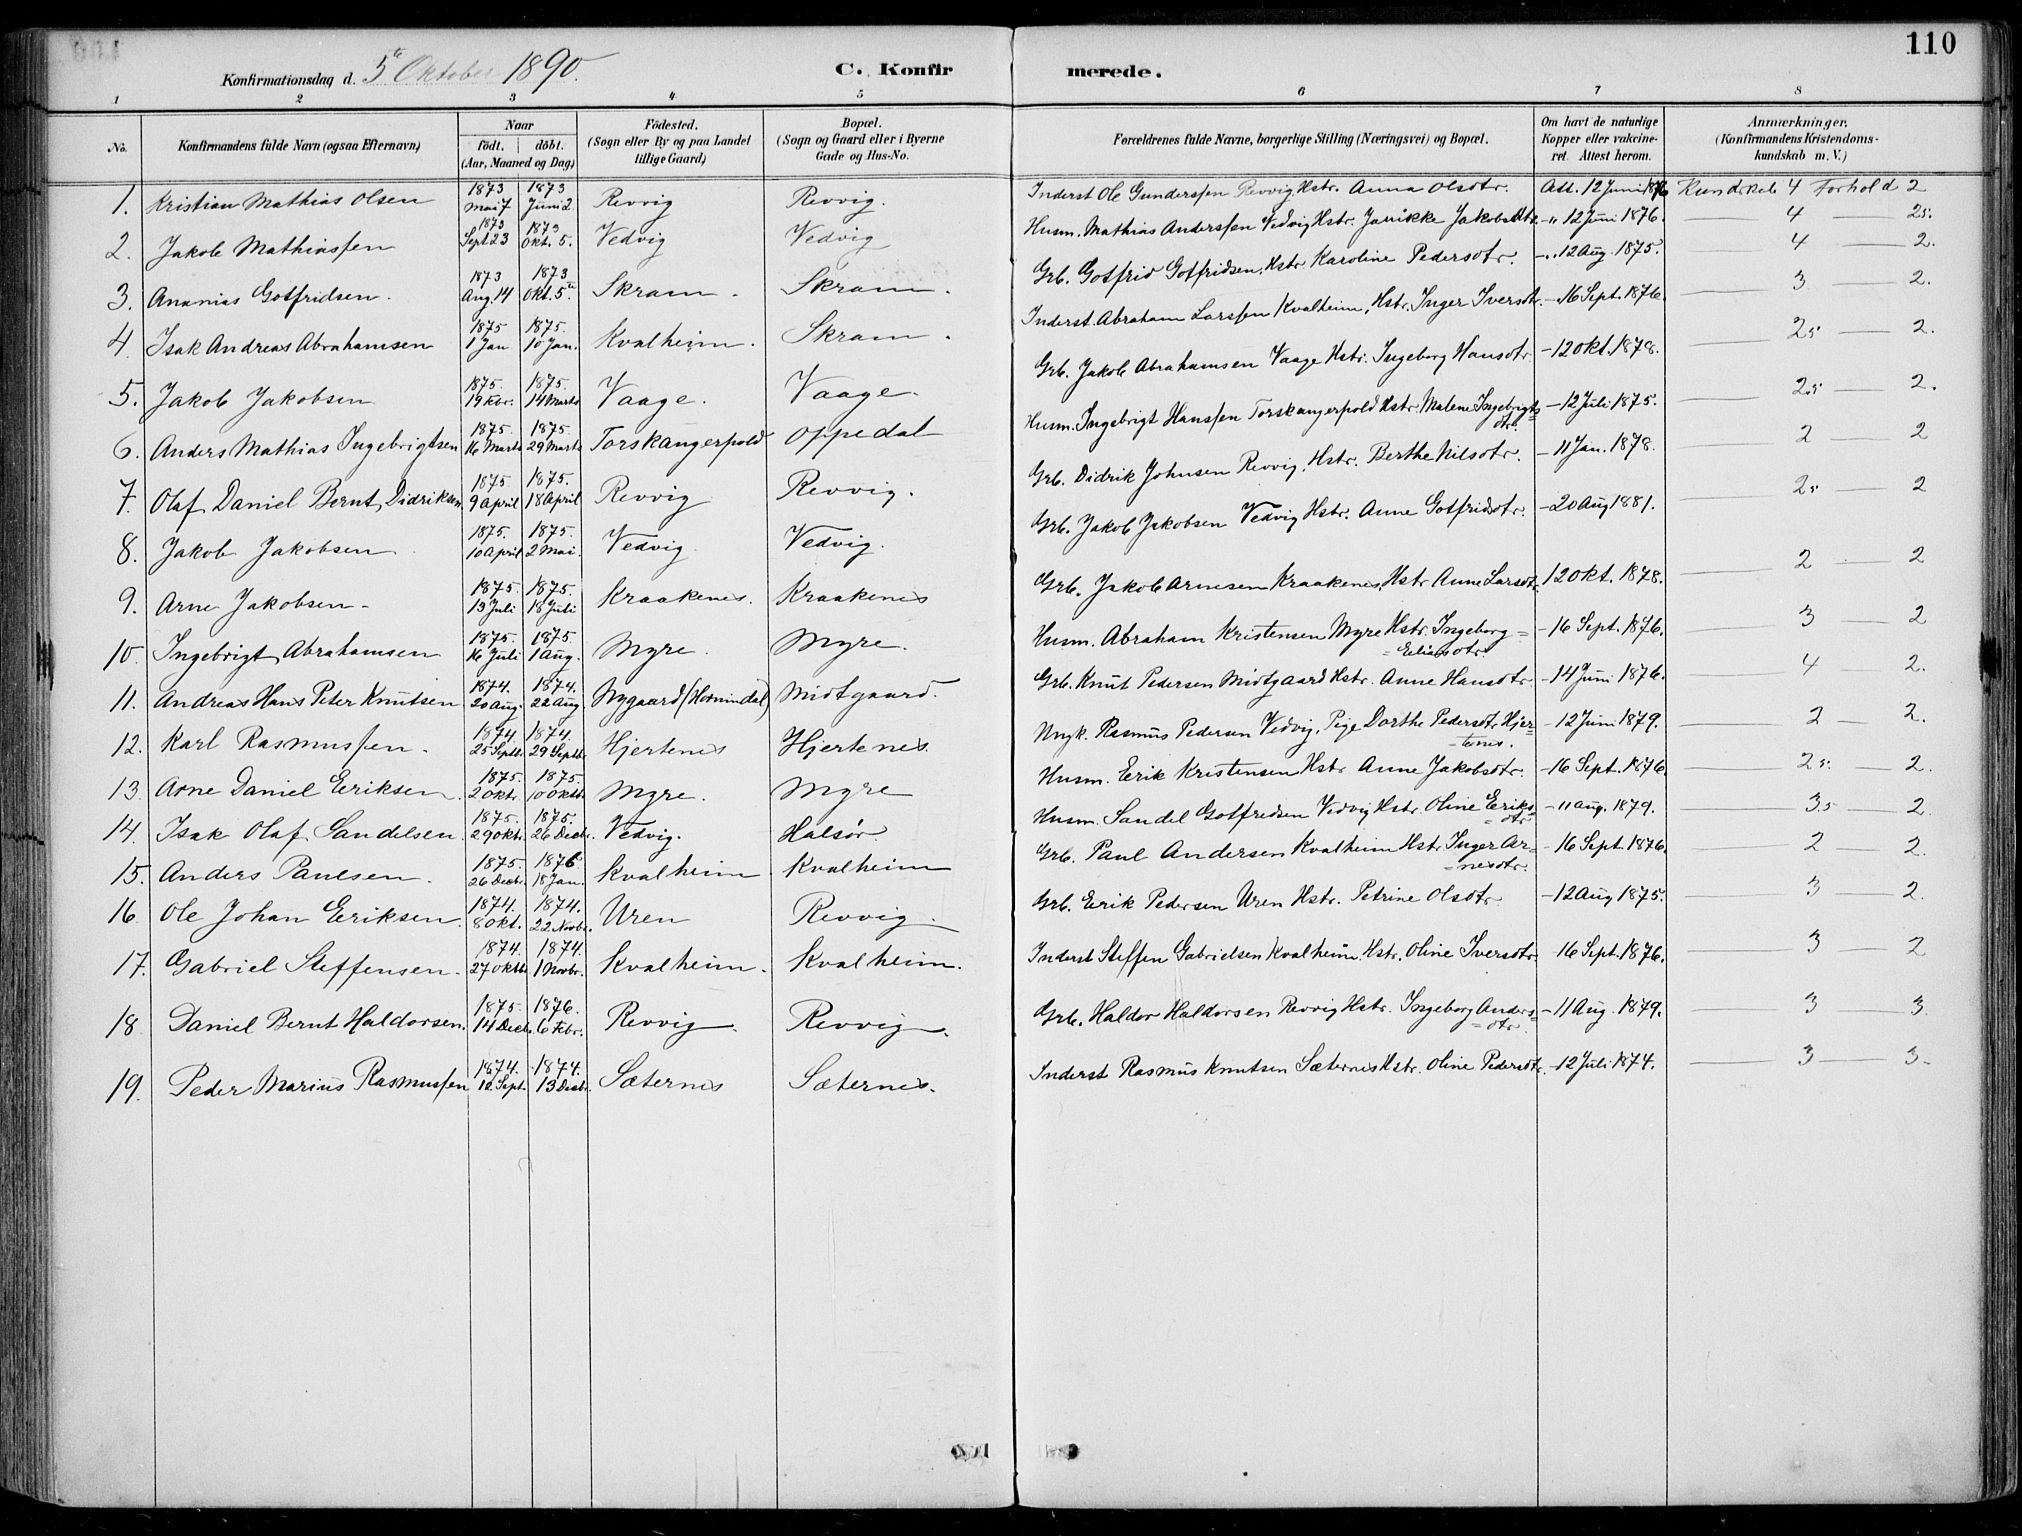 110
Konfirmationsdag d. 5te Oktober 1890.
C. Konfirmerede.
1 2 3 4 5 6 7 8
No. Konfirmandens fulde Navn (ogsaa Efternavn) Naar født. døbt. (Aar, Maaned og Dag) Fødested. (Sogn eller By og paa Landet tillige Gaard) Bopæl. (Sogn og Gaard eller i Byerne Gade og Hus-No. Forældrenes fulde Navne, borgerlige Stilling (Næringsvei) og Bopæl. Om havt de naturlige Kopper eller vakcineret. Attest herom. Anmærkninger. (Konfirmandens Kristendomskundskab m. V.)
1. Kristian Mathias Olsen 1873 Mai 7 1873 Juni 2 Revvig Revvig. Inderst Ole Gunderssen Revvig Hstr. Anna Olsdtr. Att. 12 Juni 1876 Kundskab 4 Forhold 2
2. Jakob Mathiassen 1873 Sept 23 1873 Okt. 5. Vedvig Vedvig Husm. Mathias Anderssen Vedvig Hstr. Janikke Jakobsdtr. -" 12 Juni 1876. 4 25.
3. Ananias Gotfridsen. 1873 Aug. 14 1873 Okt. 5te Skram. Skram. Grb. Gotfrid Gotfridsen, Hstr Karoline Pedersdtr. -" 12 Aug. 1875. 4 2.
4. Isak Andreas Abrahamsen 1875 1 Jan 1875. 10 Jan. Kvalheim. Skram. Inderst. Abraham Larssen Kvalheim, Hstr. Inger Iversdtr. - 16 Sept. 1876. 3 2.
5. Jakob Jakobsen 1875. 19 Febr. 1875. 14 Marts Vaage. Vaage. Grb. Jakob Abrahamsen Vaage Hstr. Ingeborg Hansdtr - 12 Okt. 1878. 25 2.
6. Anders Mathias Ingebrigtsen 1875 16 Marts 1875 29 Marts Torskangerpold Oppedal Husm. Ingebrigt Hanssen Torskangerpold Hstr. Malene Ingebrigts=dtr. - 12 Juli 1875. 25 2.
7. Olaf Daniel Bernt Didriksen. 1875 9 April 1875. 18 April Revvig Revvig. Grb. Didrik Johnsen Revvig, Hstr. Berthe Nilsdtr. - 11 Jan. 1878. 2 2
8. Jakob Jakobsen 1875. 10 April 1875 2 Mai. Vedvig Vedvig. Grb. Jakob Jakobsen Vedvig Hstr. Anne Gotfridsdtr. - 20 Aug 1881. 25 2
9. Arne Jakobsen 1875. 13 Juli 1875. 18 Juli Kraakenes. Kraakenes Grb. Jakob Arnesen Kraakenes, Hstr Anne Larsdtr. 12 Okt. 1878. 2 2
10. Ingebrigt Abrahamsen 1875. 16 Juli 1875. 1 Aug. Myre. Myre. Husm. Abraham Kristensen Myre Hstr. Ingeborg = Eliasdtr. - 16 Sept. 1876. 3 2
11. Andreas Hans Peter Knutsen 1874. 20 Aug. 1874. 22 Aug. Nygaard (Hornindal) Midtgaard. Grb. Knut Pedersen Midtgaard Hstr. Anne Hansdtr - 14 Juni 1876. 4 2.
12. Karl Rasmussen. 1874. 25 Septb. 1874. 29 Septbr Hjertenes Hjertenes. Ungk. Rasmus Pedersen Vedvig, Pige Dorthe Pedersdtr Hjer=tenes. - 12 Juni 1879. 2 2.
13. Arne Daniel Eriksen. 1875. 2 Oktr 1875. 10 Oktb Myre. Myre Husm. Erik Kristensen Hstr Anne Jakobsdtr. - 16 Sept. 1876. 25. 2.
14. Isak Olaf Sandelsen. 1875. 29 Okt. 1875. 26 Decbr. Vedvig. Halsør. Husm. Sandel Gotfredsen Vedvig Hstr. Oline Eriks=dtr - 11 Aug. 1879. 35 2.
15. Anders Paulsen. 1875 26 Decbr. 1876 18 Jan. Kvalheim Kvalheim Grb. Paul Andersen Kvalheim Hstr Inger Ar=nesdtr. - 16 Sept. 1876. 2 2.
16. Ole Johan Eriksen. 1874. 8 Okt. 1874. 22 Novbr. Uren Revvig. Grb. Erik Pedersen Uren Hstr. Petrine Olsdtr - 12 Aug 1875. 3 2.
17. Gabriel Steffensen. 1874 27 Oktb. 1874. 1 Novbr. Kvalheim. Kvalheim. Inderst Steffen Gabrielsen Kvalheim, Hstr. Oline Iversdtr. 16 Sept. 1876. 3 2
18. Daniel Bernt Haldorsen. 1875. 14 Decb. 1876. 6 Febr. Revvig. Revvig. Grb. Haldor Haldorsen Revvig Hstr. Ingeborg Anders=dtr. - 11 Aug. 1879. 3 3.
19. Peder Marius Rasmussen 1874. 12 Sept. 1874. 13 Decbr. Sæternes Sæternes. Inderst Rasmus Knutsen Sæternes Hstr. Oline Pedersdtr. - 12 Juli 1874. 3 3.